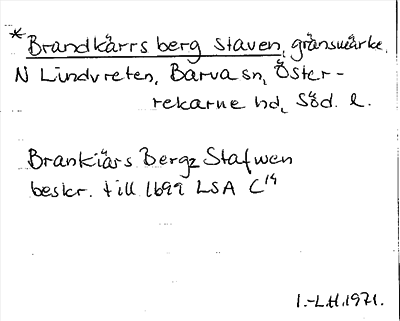 *Brandkärrs berg staven, gränsmärke,
N Lindvreten, Barva sn, Öster-
rekarne hd, Söd. l.
Brankiärs Bergz Stafwen
beskr. till 1699 LSA C¹⁴
I.-L.H. 1971.